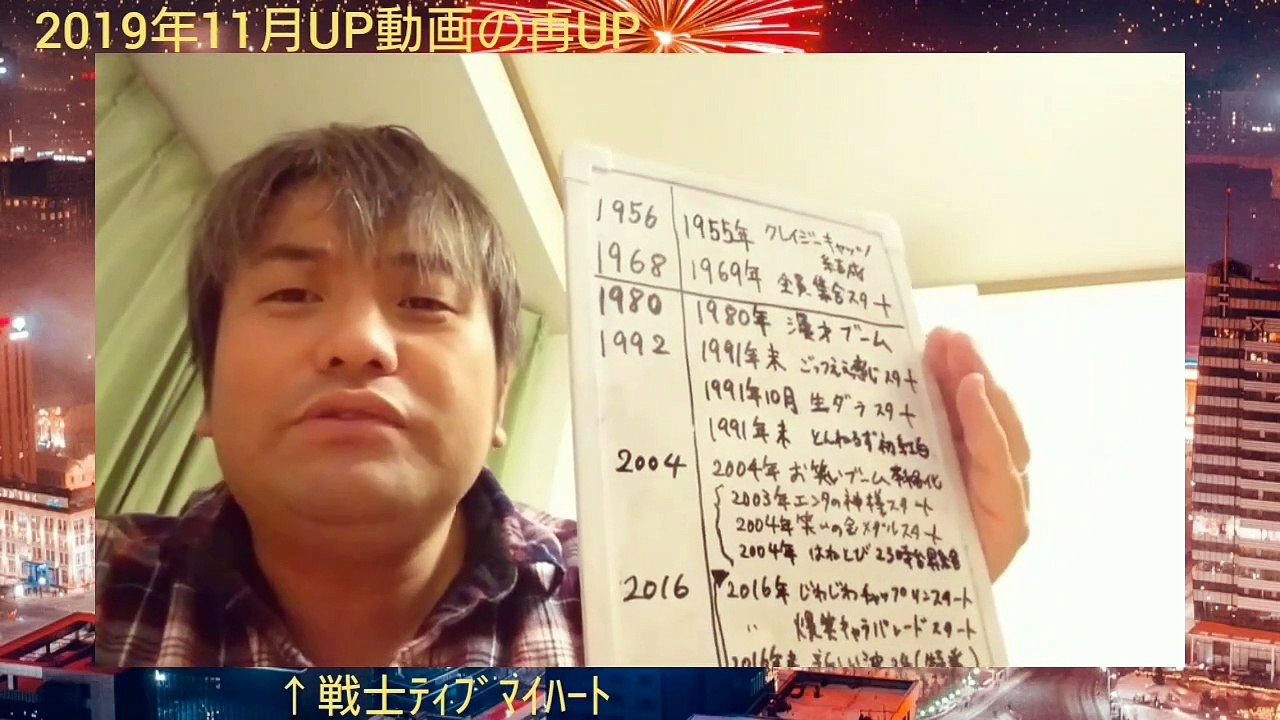 2019年11月UP動画の再UP
1956 1955年 クレイジーキャッツ
結成
1968 1969年 全員集合スタート
1980 1980年 漫才ブーム
1992 1991年末 ごっつええ感じスタート
1991年10月 生ダラスタート
1991年末 とんねるず初紅白
2004 2004年 お笑いブーム本格化
2003年エンタの神様スタート
2004年笑いの金メダルスタート
2004年 はねとび23時台
2016 2016年 じわじわチャップリンスタート
〃 爆笑キャラパレードスタート
2016年末 新しい波24
↑戦士ﾃｨﾌﾞ ﾏｲﾊｰﾄ